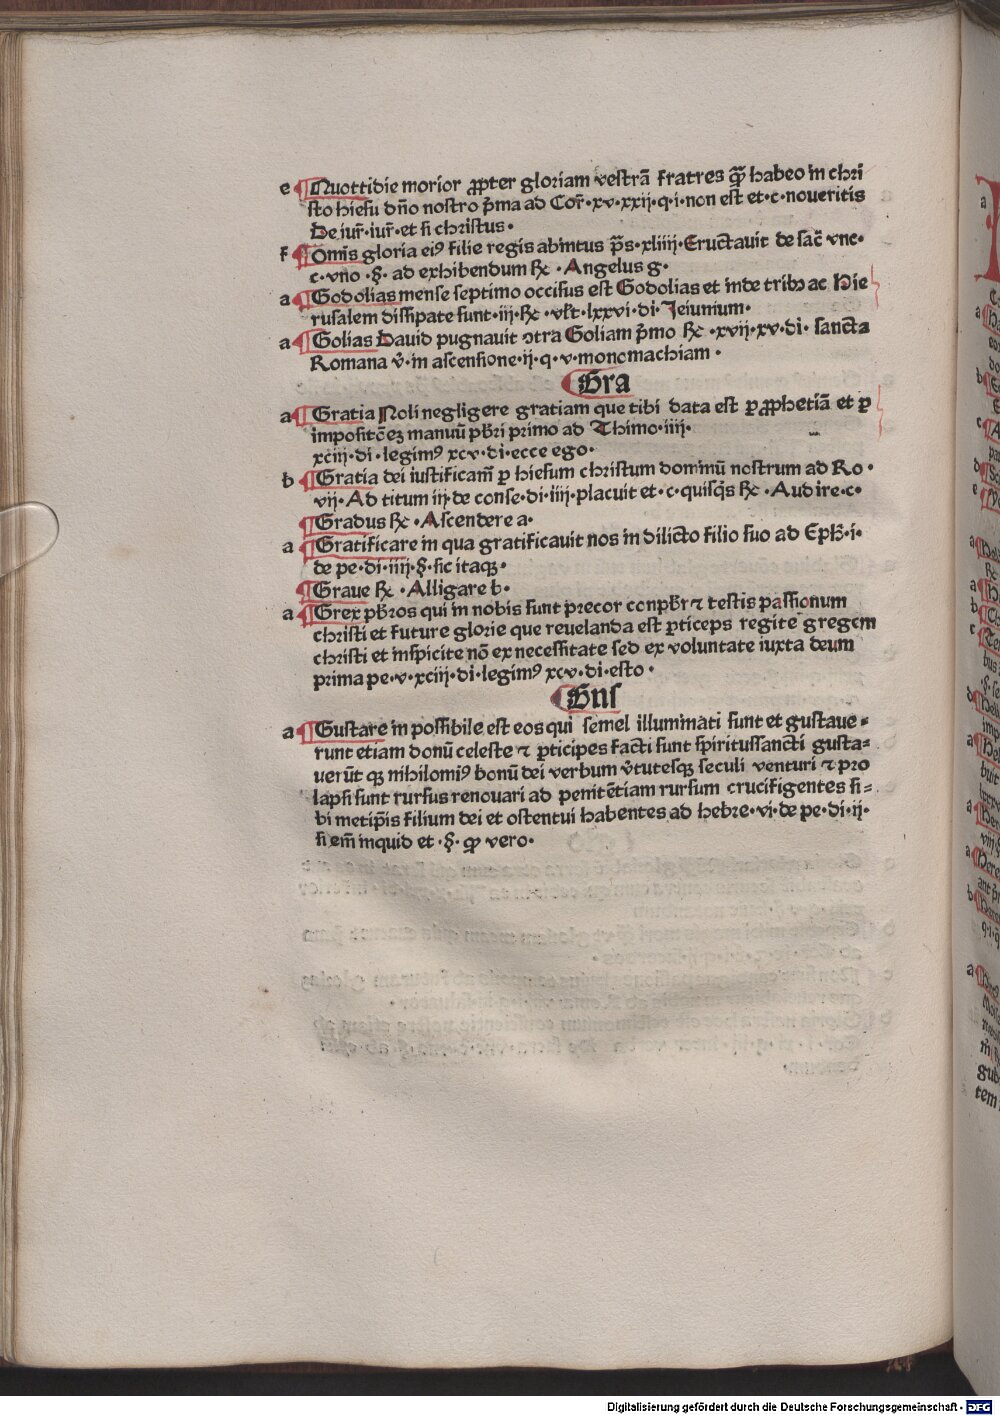 e ¶Quottidie morior ꝓpter gloriam vestrā fratres qͣ habeo in chri
sto hiesu dn̄o nostro p̄ma ad Cor̄·xv·xxij·q·i·non est et·c·noveritis
De iur̄·iur̄·et si christus·
f ¶Omīs gloria eiꝰ filie regis abintus p̄s·xliiij·Eructauit de sac̄ vnc·
c·vno·§·ad exhibendum ℞c·Angelus g·
a ¶Godolias mense septimo occisus est Godolias et inde tribꝫ ac Hie
rusalem dissipate sunt·iij·℞c·vl̄t·lxxvi·di·Jeiunium·
a ¶Golias David pugnauit ↄtra Goliam p̄mo ℞c·xvij·xv·di·sancta
Romana v̄·in ascensione·ij·q·v·monomachiam·
Gra
a ¶Gratia Noli negligere gratiam que tibi data est ꝑ ꝓphetiā et ꝑ
impositōeꝫ manuū pb̄ri primo ad Thimo·iiij·
xciij·di·legimꝰ xcv·di·ecce ego·
b ¶Gratia dei iustificam̄ ꝑ hiesum christum dominū nostrum ad Ro·
vij·Ad titum iij·de conse·di·iiij·placuit et·c·quisqꝫ ℞c·Audire·c·
¶Gradus ℞c·Ascendere a·
a ¶Gratificare in qua gratificauit nos in dilicto filio suo ad Eph̄·i·
de pe·di·iiij·§·sic itaqꝫ·
¶Graue ℞c·Alligare b·
a ¶Grex pb̄ros qui in nobis sunt precor conpb̄r ⁊ testis passionum
christi et future glorie que reuelanda est ꝑticeps regite gregem
christi et inspicite nō ex necessitate sed ex voluntate iuxta deum
prima pe·v·xciij·di·legimꝰ xcv·di·esto·
Gus
a ¶Gustare in possibile est eos qui semel illuminati sunt et gustaue⸗
runt etiam donū celeste ⁊ ꝑticipes facti sunt spiritussancti gusta⸗
uerūt qꝫ nihilomiꝰ bonū dei verbum v̄tutesqꝫ seculi venturi ⁊ pro
lapsi sunt rursus renouari ad penitētiam rursum crucifigentes si⸗
bi metip̄is filium dei et ostentui habentes ad hebre·vi·de pe·di·ij·
si em̄ inquid et·§·ꝙ vero·
Digitalisierung gefördert durch die Deutsche Forschungsgemeinschaft · DFG